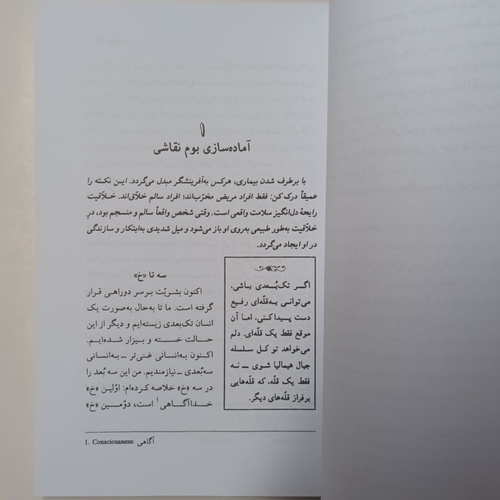 ۱
آماده‌سازی بوم نقاشی
با برطرف شدن بیماری، هرکس به‌آفرینشگر مبدل می‌گردد. این نکته را
عمیقاً درک کن: فقط افراد مریض مخرّب‌اند؛ افراد سالم خلاّق‌اند. خلاّقیت
رایحهٔ دل‌انگیز سلامت واقعی است. وقتی شخص واقعاً سالم و منسجم بود، درِ
خلاّقیت به‌طور طبیعی به‌روی او باز می‌شود و میل شدیدی به‌ابتکار و سازندگی
در او ایجاد می‌گردد.
سه تا «خ»
اکنون بشریّت برسر دوراهی قرار
گرفته است. ما تا به‌حال به‌صورت یک
انسان تک‌بعدی زیسته‌ایم و دیگر از این
حالت خسته و بیزار شده‌ایم.
اکنون به‌انسانی غنی‌تر ـ به‌انسانی
سه‌بُعدی ـ نیازمندیم. من این سه بعد را
در سه «خ» خلاصه کرده‌ام: اوّلین «خ»
خداآگاهی۱ است، دوّمین «خ»
اگر تک‌بُعدی باشی،
می‌توانی به‌قله‌ای رفیع
دست پیدا کنی، اما آن
موقع فقط یک قله‌ای. دلم
می‌خواهد تو کل سلسله
جبال هیمالیا شوی ـ نه
فقط یک قله. که قله‌هایی
برفراز قله‌های دیگر.
1. Consciousness: آگاهی